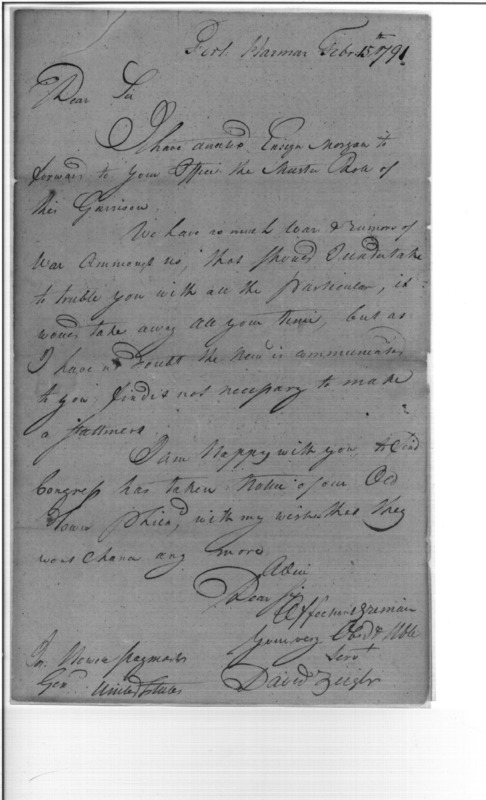 Fort Harmar Febr 15th 1791
Dear Sir
I have Ensign Morgan to
forward to your Office the Muster Role of
this Garrison
We have so much War & rumors of
War Ammongst us, that should I undertake
to truble you with all the particular, it
would take away all your time, but as
I have no doubt the News is
to you, find is not necessary to make
a
I am Happy with you to find
Congress has taken Notice of our Old
Town with my wish that they
any more
Adieu
Dear Sir
your very Obed & Hble
Servt
David Zeigler
Jn. Howell
Genl United States